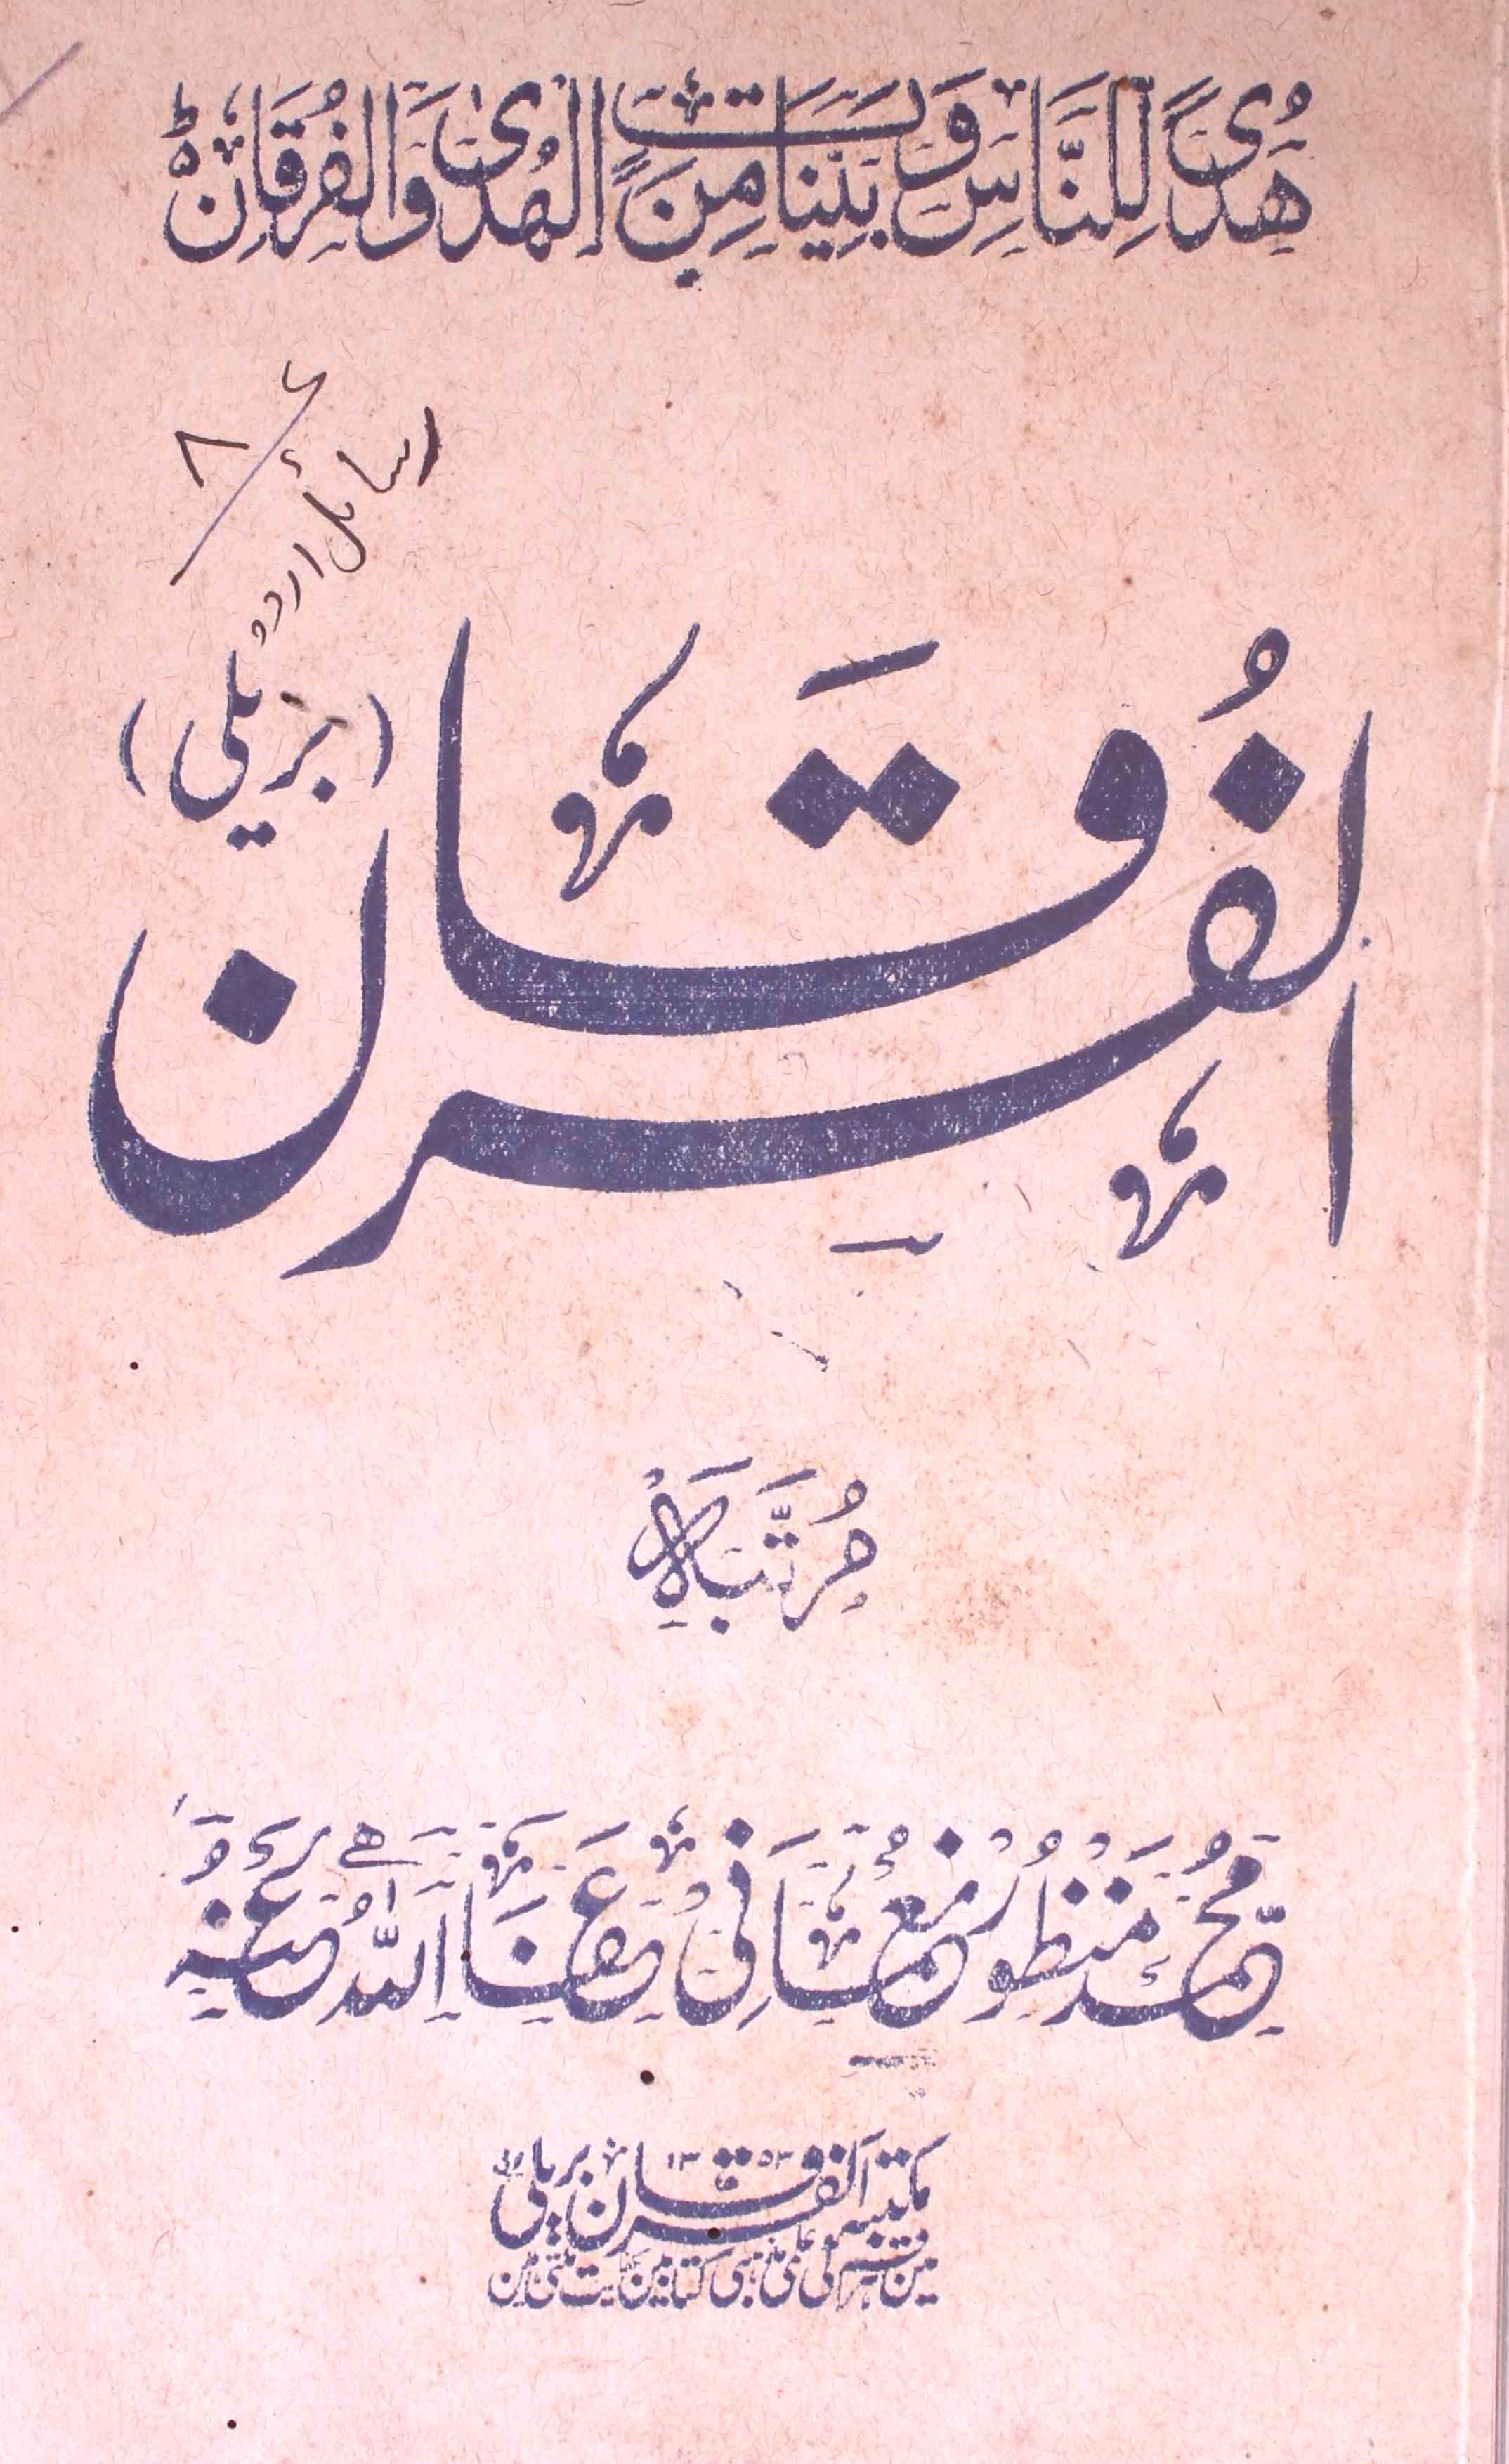 هُدًى لِّلنَّاسِ وَبَيِّنَاتٍ مِنَ الْهُدَىٰ وَالْفُرْقَانِ ط
۸/۶
رسائل اردو
(بریلی)
الفُرقَان
مُرَتَّبَہٗ
مُحَمَّد مَنظُور نُعمَانِی عَفَا اللّٰهُ عَنہُ
مکتبہ الفرقان بریلی
مین ہر قسم کی علمی مذہبی کتابین ملتی ہین